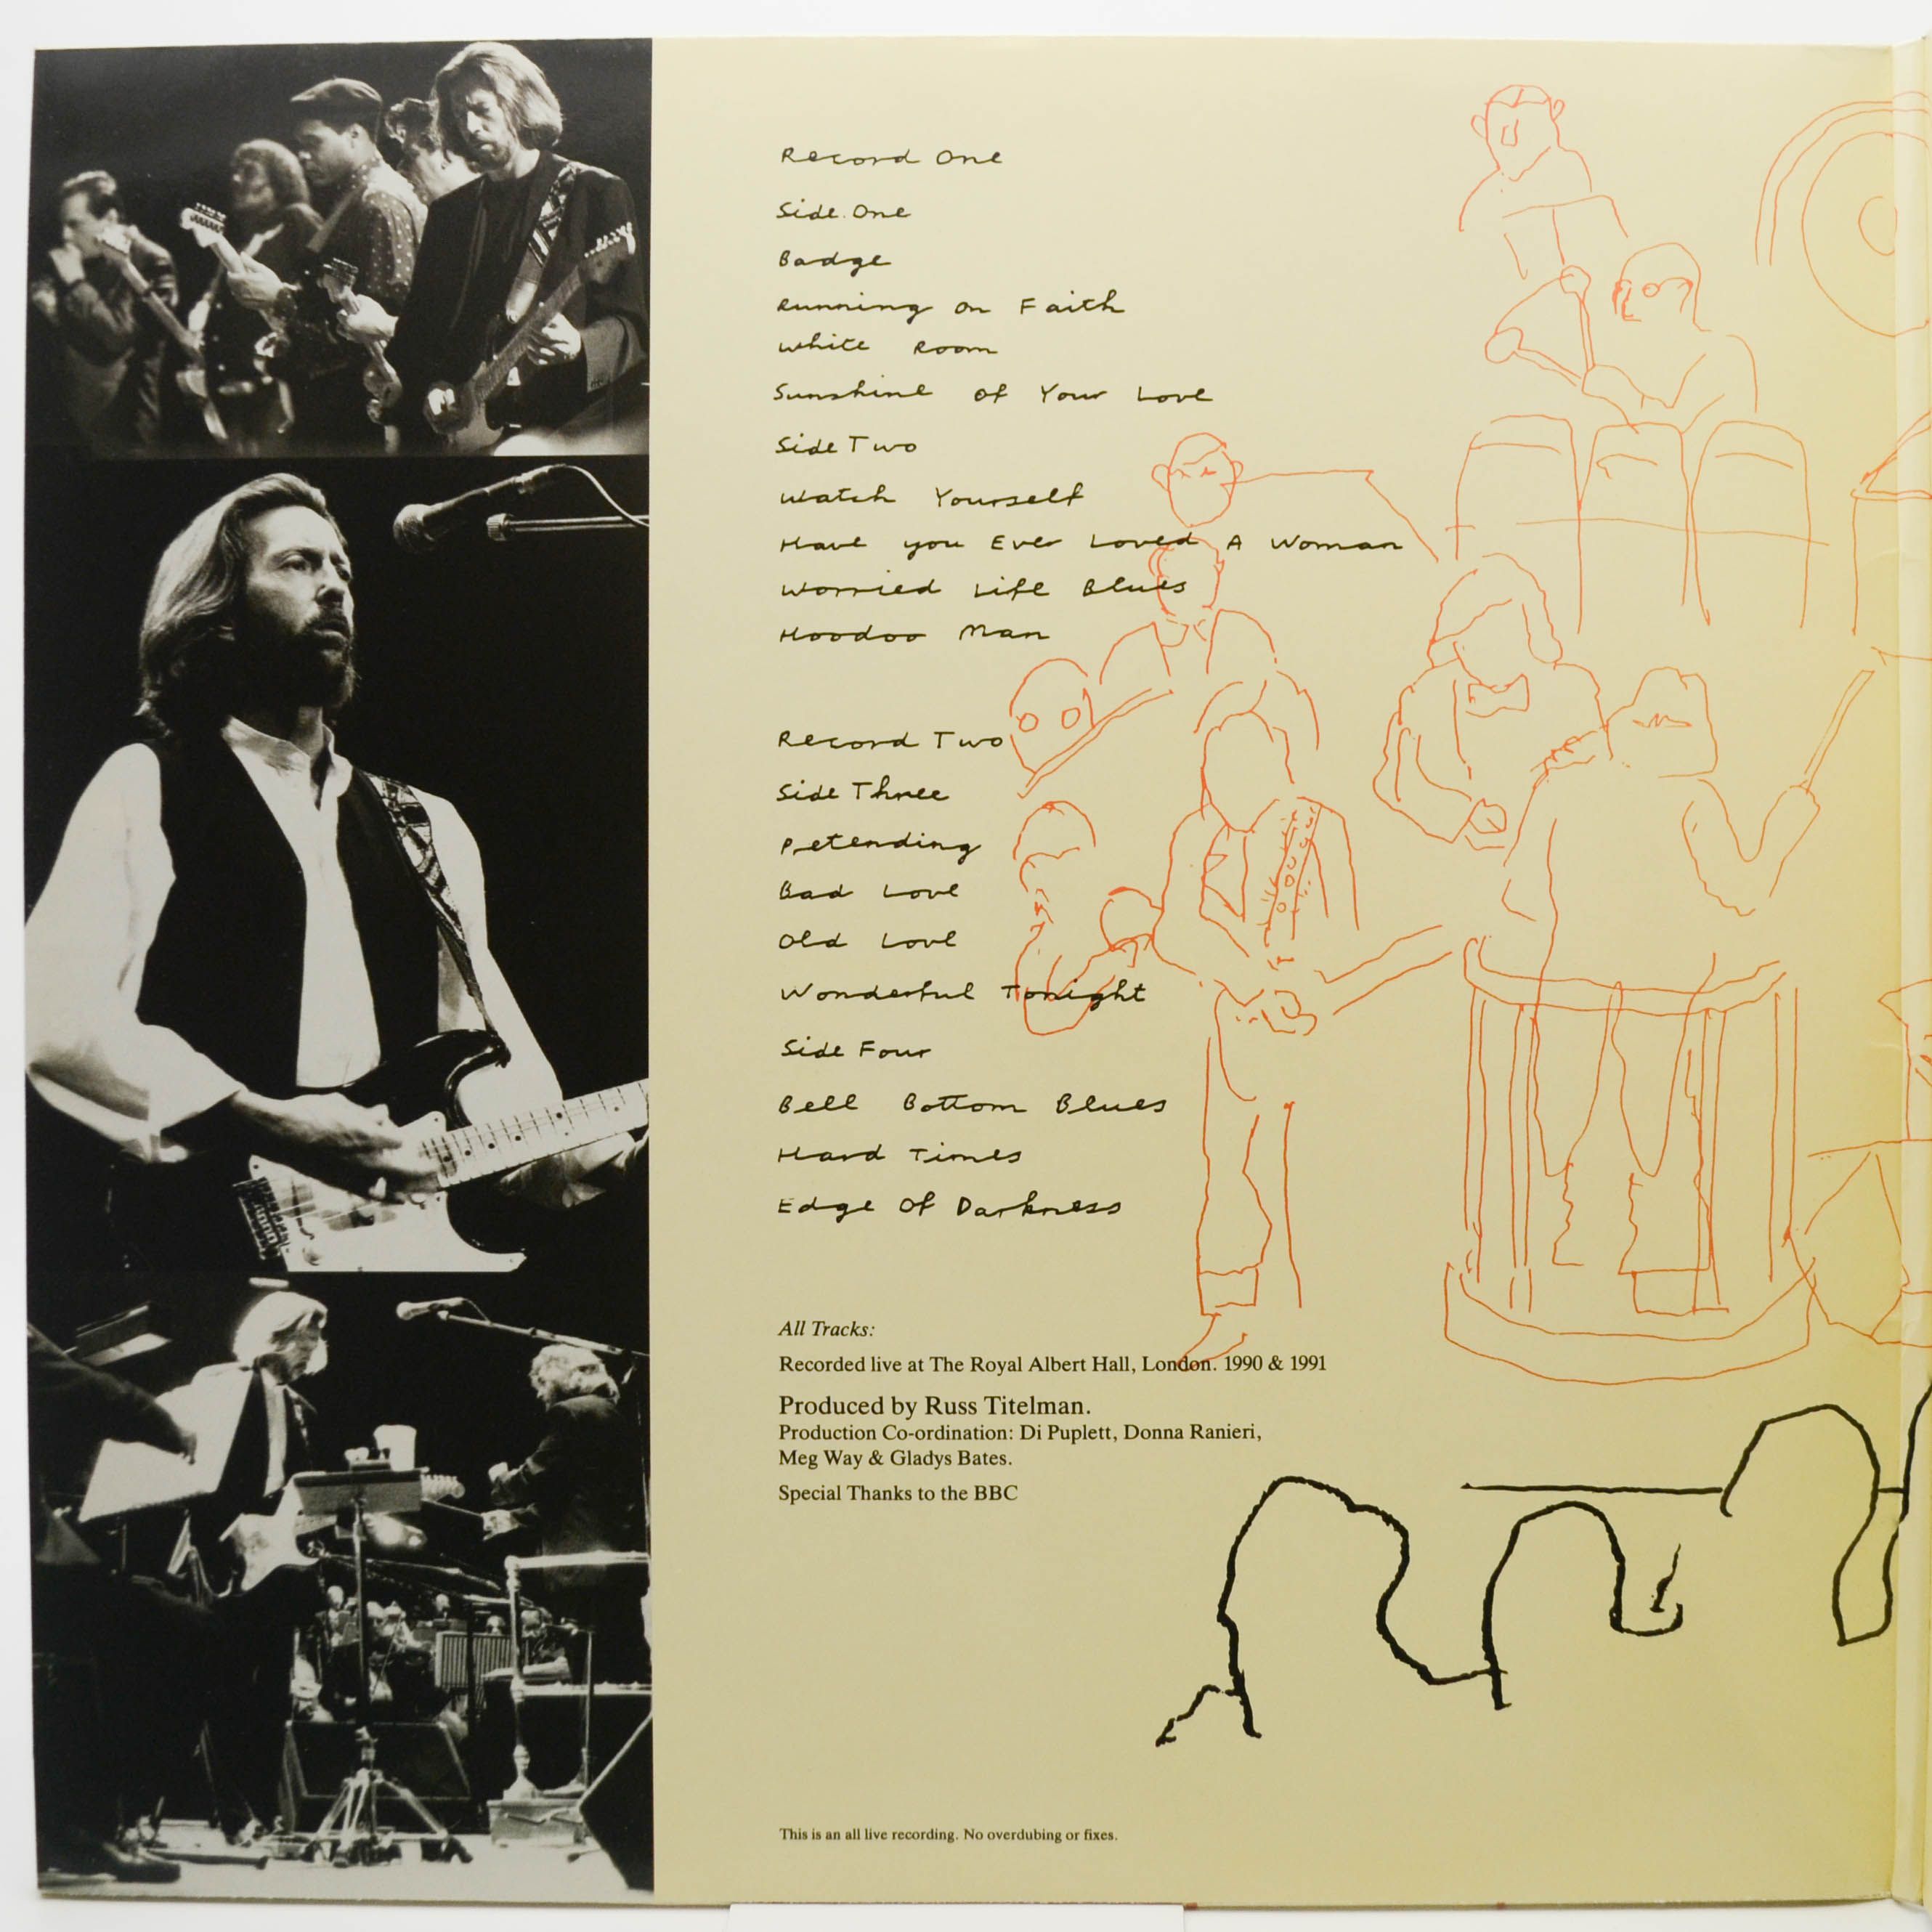 Record One
Side One
Badge
Running on Faith
White Room
Sunshine of Your Love
Side Two
Watch Yourself
Have you Ever Loved A Woman
Worried Life Blues
Hoodoo Man
Record Two
Side Three
Pretending
Bad Love
Old Love
Wonderful Tonight
Side Four
Bell Bottom Blues
Hard Times
Edge Of Darkness
All Tracks:
Recorded live at The Royal Albert Hall, London. 1990 & 1991
Produced by Russ Titelman.
Production Co-ordination: Di Puplett, Donna Ranieri,
Meg Way & Gladys Bates.
Special Thanks to the BBC
This is an all live recording. No overdubing or fixes.